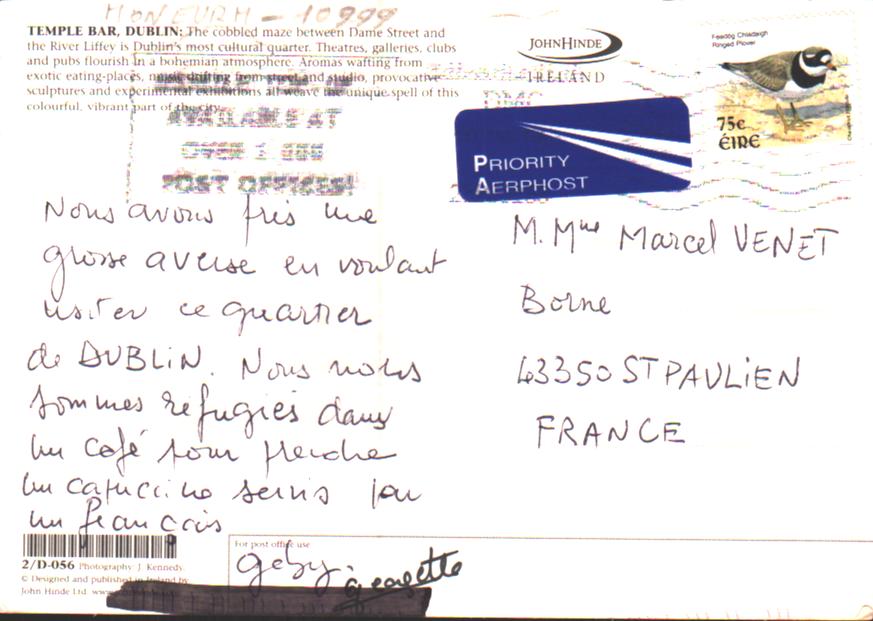 MONEURM - 10999
TEMPLE BAR, DUBLIN: The cobbled maze between Dame Street and
the River Liffey is Dublin's most cultural quarter. Theatres, galleries, clubs
and pubs flourish in a bohemian atmosphere. Aromas wafting from
exotic eating-places, music drifting from street and studio, provocative
sculptures and experimental exhibitions all weave the unique spell of this
colourful, vibrant part of the city.
JOHN HINDE
IRELAND
Feadóg Chladaigh
Ringed Plover
75c
ÉIRE
PRIORITY
AERPHOST
POST OFFICES!
Nous avons pris une
grosse averse en voulant
visiter ce quartier
de DUBLIN. Nous nous
sommes réfugiés dans
un café pour prendre
un capuccino servis par
un français
M. Mme Marcel VENET
Borne
43350 ST PAULIEN
FRANCE
For post office use
Geby. Georgette
2/D-056 Photography: J. Kennedy.
© Designed and published in Ireland by
John Hinde Ltd. www